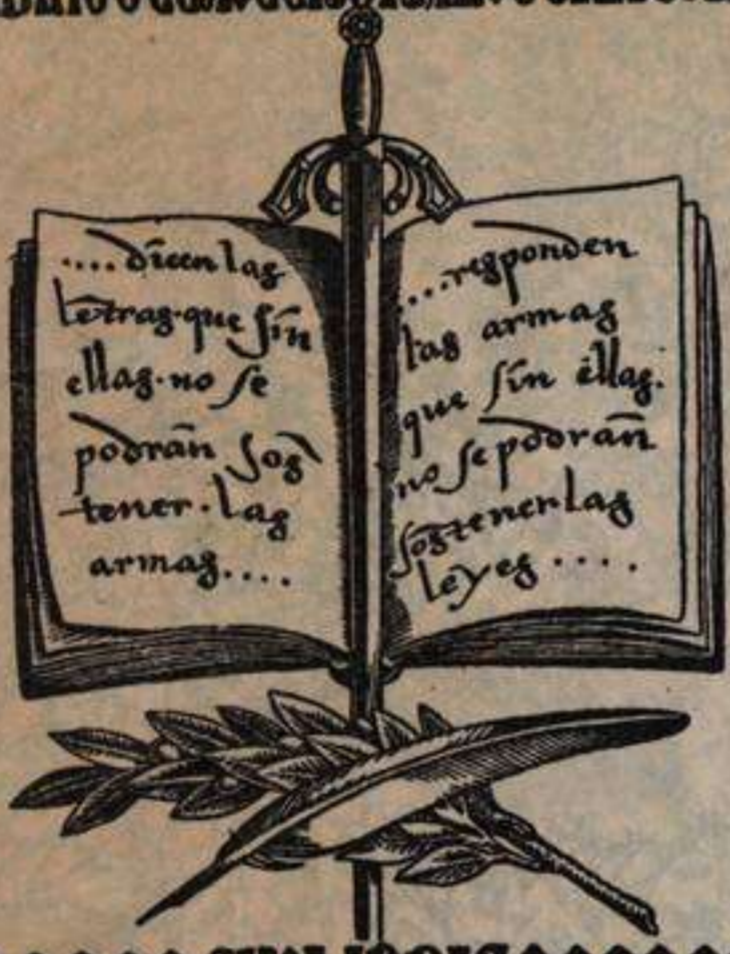 ....dicen las
letras·que sin
ellas·no se
podrán sos
tener·las
armas....
....responden
las armas
que sin ellas·
no se podrán
sostener las
leyes....